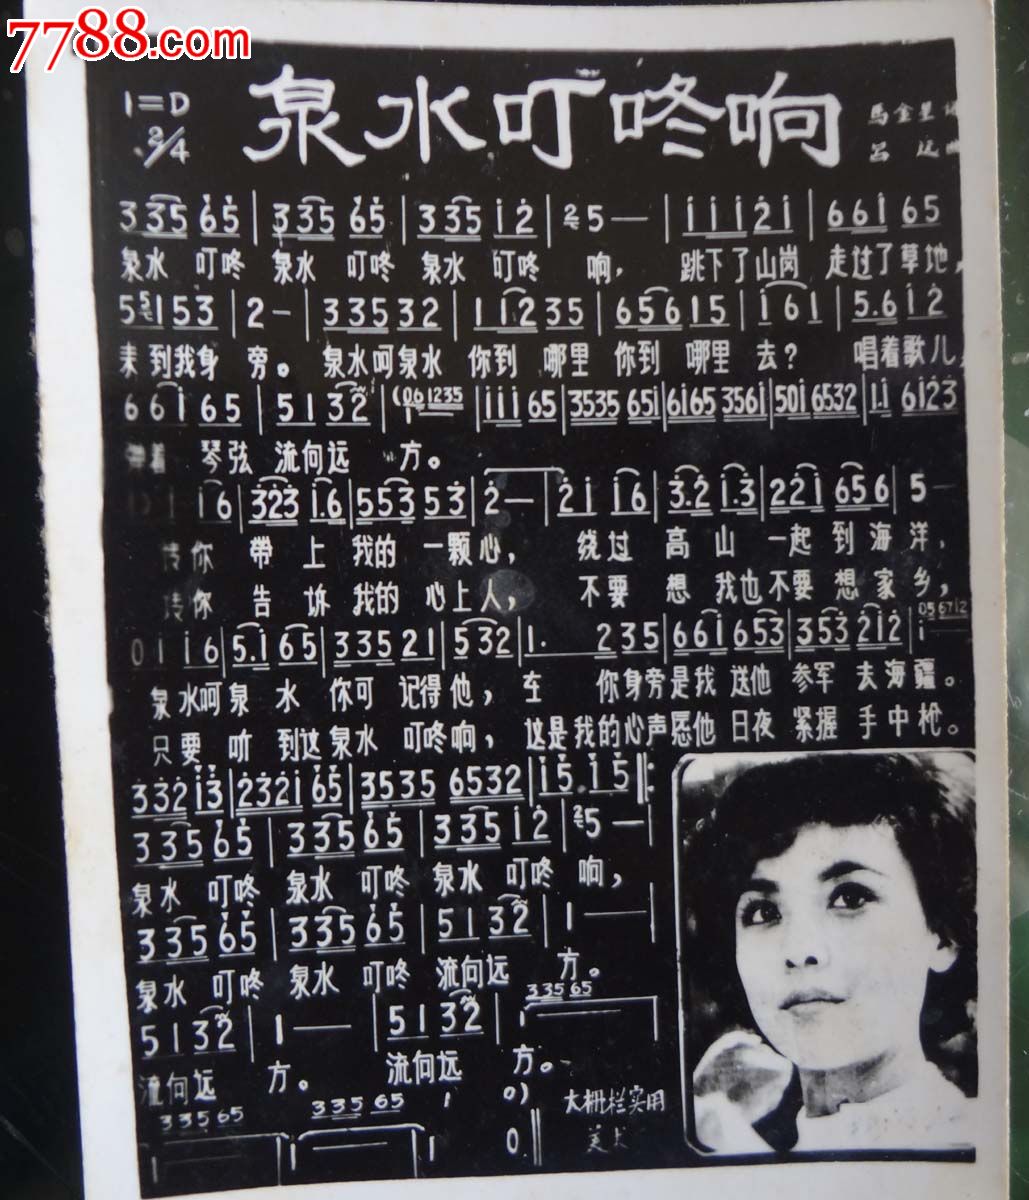 7788.com
1=D
2/4
泉水叮咚响
馬金星
呂远曲
3 35 65 | 3 35 65 | 3 35 i 2 | 5 — | i i i 2 i | 6 6 i 65
泉水 叮咚 泉水 叮咚 泉水 叮咚 响， 跳下了山岗 走过了草地，
5 1 5 3 | 2 — | 3 3 5 3 2 | 1 1 2 3 5 | 6 5 6 1 5 | i 6 i | 5. 6 i 2
来到我身 旁。 泉水呵泉水 你到 哪里 你到 哪里 去？ 唱着歌儿，
6 6 i 65 | 5 1 3 2 | (061235 | i i i 65 | 3535 65i | 6i65 356i | 50i 6532 | i.i 6i23
着 琴弦 流向远 方。
i 6 | 3 2 3 i. 6 | 5 5 3 5 3 | 2 — | 2 i i 6 | 3. 2 i. 3 | 2 2 i 6 5 6 | 5 —
你 帶 上 我的 一颗心， 绕过 高山 一起到海洋，
你 告 诉 我的 心上人， 不要 想 我也不要想家乡，
0 i i 6 | 5. i 6 5 | 3 3 5 2 1 | 5 3 2 | 1. 2 3 5 | 6 6 i 6 5 3 | 3 5 3 2 i 2 | i 0 5 6 7 i 2
泉水呵泉 水 你可 记得他， 在 你身旁是我 送他 参军 去海疆。
只要 听 到这泉水 叮咚响， 这是我的心声愿他 日夜 紧握 手中枪。
3 3 2 i 3 | 2 3 2 i 6 5 | 3 5 3 5 6 5 3 2 | i 5. i 5 :
3 35 65 | 3 35 65 | 3 35 i 2 | 5 — |
泉水 叮咚 泉水 叮咚 泉水 叮咚 响，
3 35 65 | 3 35 65 | 5 1 3 2 | 1 —
泉水 叮咚 泉水 叮咚 流向远 方。
3 3 5 6 5
5 1 3 2 | 1 — | 5 1 3 2 | 1
流向远 方。 流向远 方。
3 3 5 6 5 3 3 5 6 5 i 0)
大栅栏实用
美术
1 | 1 | 0 ‖